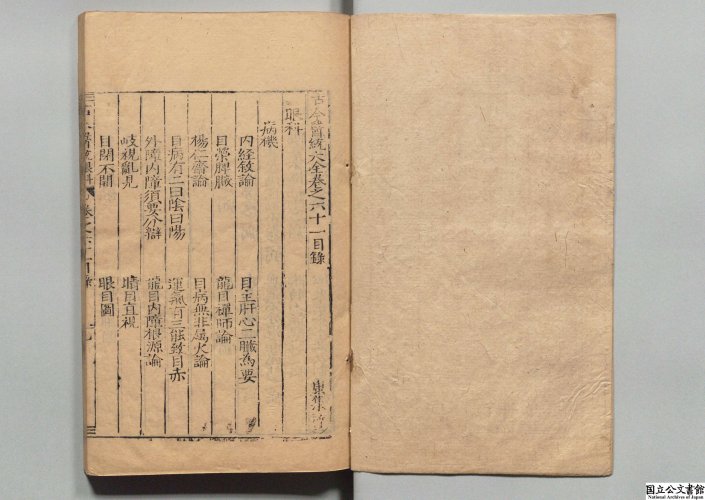 古今醫統大全卷之六十一目錄
眼科
病機
内経敘論
目主肝心二臟為要
目榮脾臟
龍目禪師論
楊仁齋論
目病無非屬火論
目病有二曰陰曰陽
運氣有三能致目赤
外障内障須要分辯
龍目内障根源論
岐視亂見
睛目直視
目閉不開
眼目圖
国立公文書館
National Archives of Japan